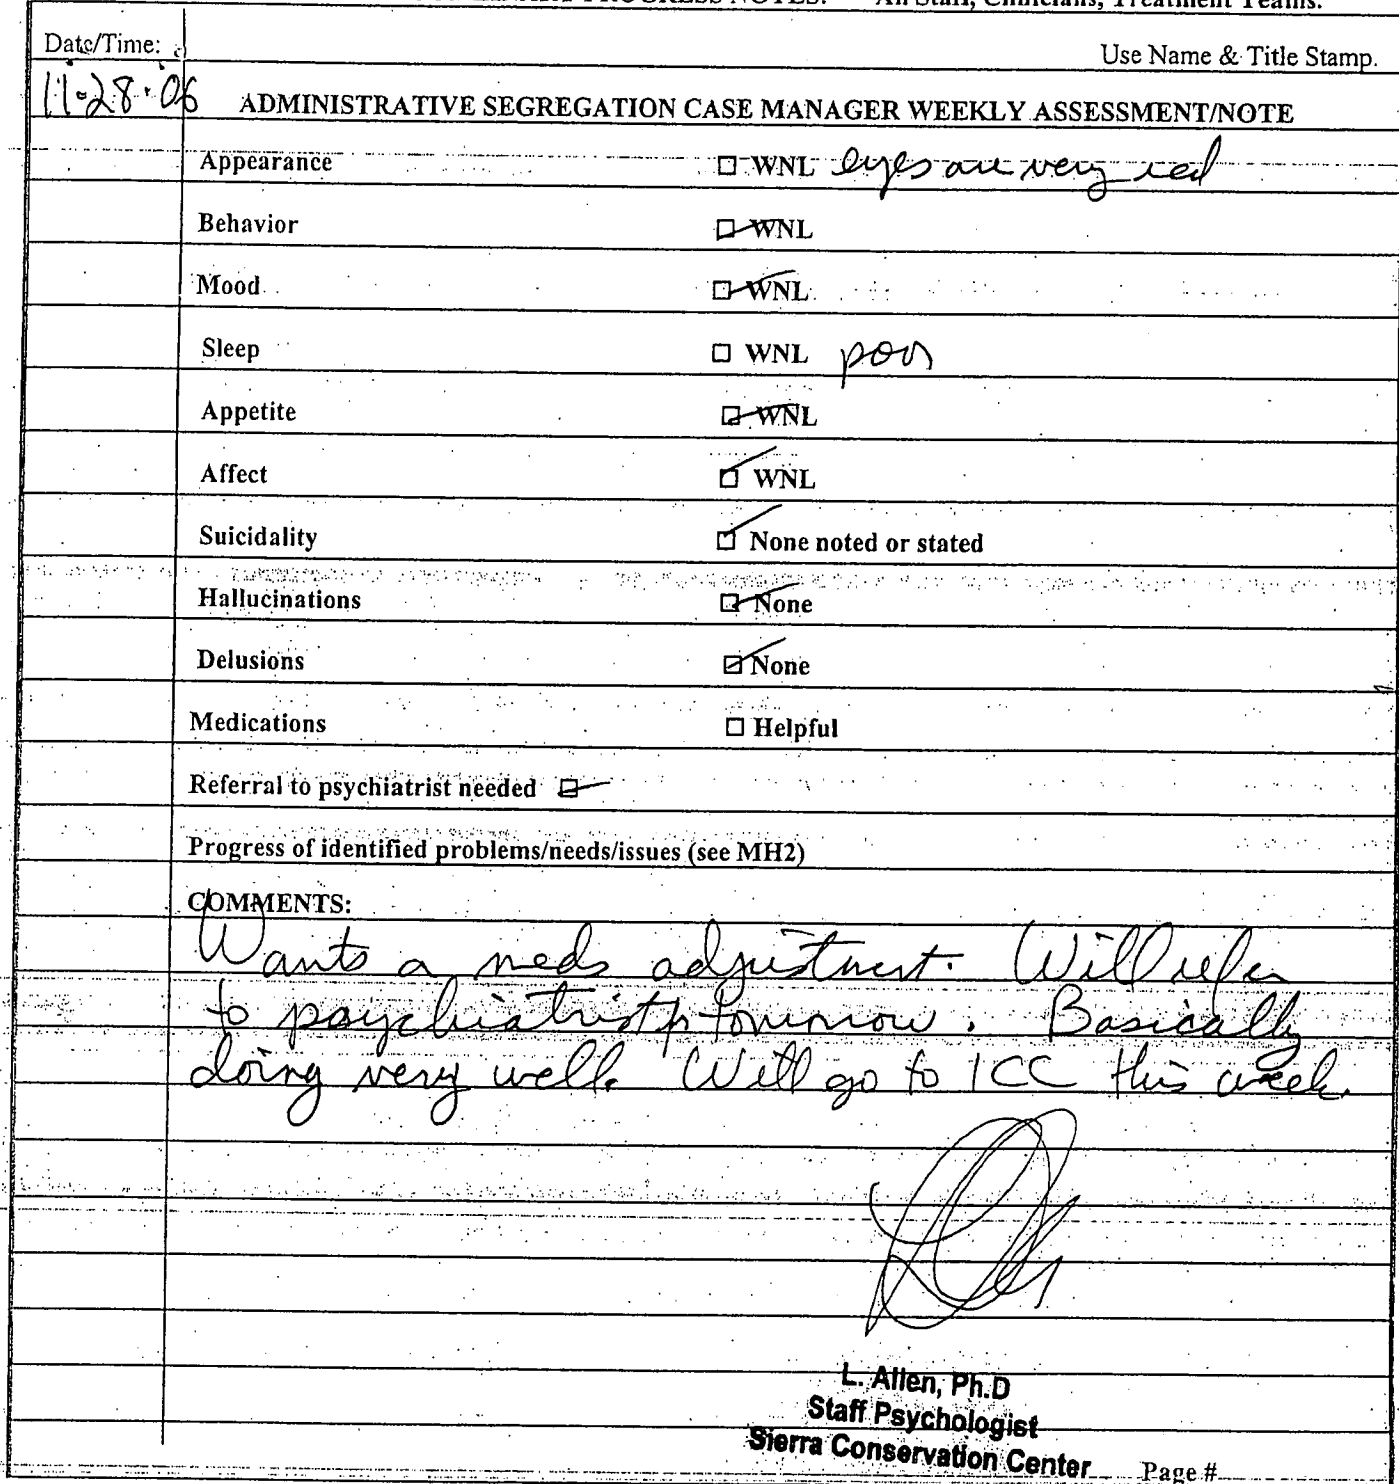 PROGRESS NOTES: All Staff, Clinicians, Treatment Teams.
Date/Time:
Use Name & Title Stamp.
11-28-06 ADMINISTRATIVE SEGREGATION CASE MANAGER WEEKLY ASSESSMENT/NOTE
Appearance ☐ WNL eyes are very red
Behavior ☑ WNL
Mood ☑ WNL
Sleep ☐ WNL poor
Appetite ☑ WNL
Affect ☑ WNL
Suicidality ☑ None noted or stated
Hallucinations ☑ None
Delusions ☑ None
Medications ☐ Helpful
Referral to psychiatrist needed ☑
Progress of identified problems/needs/issues (see MH2)
COMMENTS:
Wants a meds adjustment. Will refer
to psychiatrist tomorrow. Basically
doing very well. Will go to ICC this week.
L. Allen, Ph.D
Staff Psychologist
Sierra Conservation Center
Page #